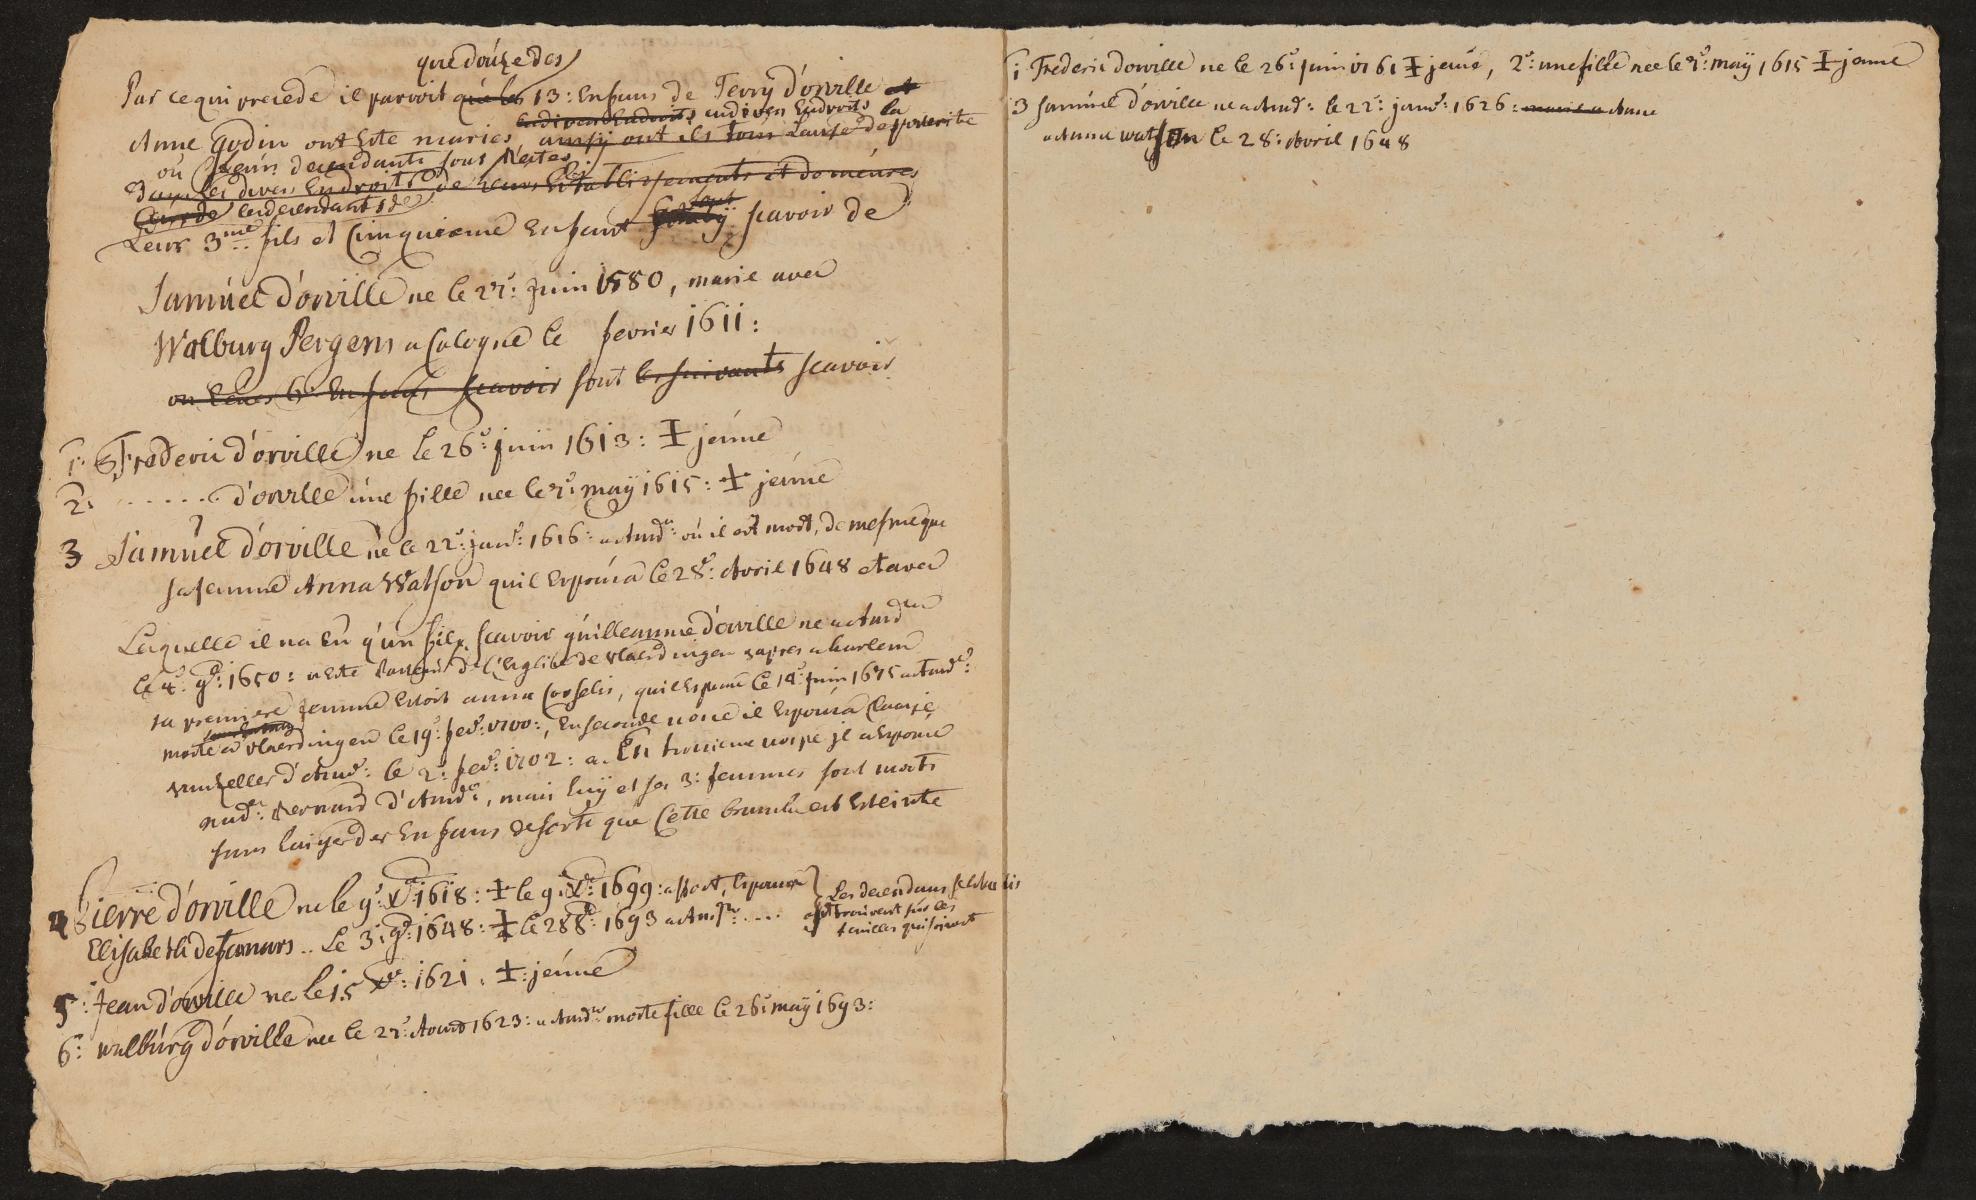 que douze des
Par ce qui precede il paroit qu'a les 13: Enfans de Terry d'orville et
Anne Godin ont Este maries en divers Endroits la
ainsy ont ils tous laisse de posterite
ou leurs decendants sont Restes
dans les divers Endroits de leurs Etablissements et domeures
les decendants de
Leur 3me fils et Cinquieme Enfant scavoir de
Samuel d'orville ne le 22e: Juin 1580, marie avec
Walburg Pergens a Cologne le fevrier 1611:
sont les suivants scavoir
1: Frederic d'orville ne le 26e: juin 1613: ‡ jeune
2: ...... d'orville une fille nee le 2e: may 1615: ‡ jeune
3 Samuel d'orville ne le 22e: janr: 1616: a Amdm: où il est mort, de mesme que
sa femme Anna Watson quil Espousa le 28e: Avril 1648 et avec
Laquelle il na Eu q'un fils, scavoir guilleaume d'orville ne a Amdm
le 4e: 9e: 1650: a este Pasteur de l'Eglise de vlaerdingen apres a harlem
sa premiere femme Estoit anna Corselis, quil Espousa le 14e: Juin 1675 a Amdm:
morte a vlaerdingen le 19e: fevr: 1700:, En seconde noce il Espousa
d'Amdm: le 2e: fevr: 1702: a. En troisieme nospe jl a Espousé
madle: Bernard d'Amdm:, mais luy et ses 3: femmes sont morts
sans laisser des Enfans de sorte que Cette branche est Esteinte
4 Pierre d'orville ne le 9e: Xe: 1618: ‡ le 9e: Xe: 1699: a fort, Espousa
Elisabeth de famars .. Le 3e: 9e: 1648: ‡ le 28 8e: 1693 a Amsm: ....
Les decendans
se trouvent sur les
feuilles qui suivent
5: Jean d'orville ne le 15 Xe: 1621. ‡: jeune
6: walburg d'orville nee le 22e: Aoust 1623: a Amdm: morte fille le 26e: may 1693:
1 Frederic dorville ne le 26e: juin 1761 ‡ jeune, 2e: une fille nee le 2e: may 1615 ‡ jeune
3 Samuel d'orville ne a Amdm: le 22e: janvr: 1626: marie a Anne
a Anna watson le 28: Avril 1648